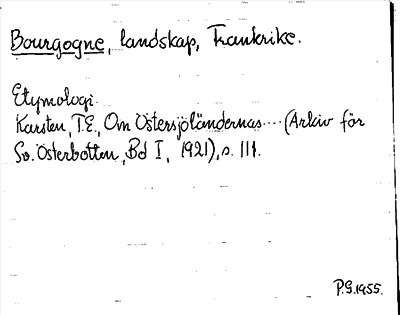 Bourgogne, landskap, Frankrike.
Etymologi.
Karsten, T.E., Om Östersjöländernas .... (Arkiv för
Sv. Österbotten, Bd I, 1921), s. 111.
P.G. 1955.